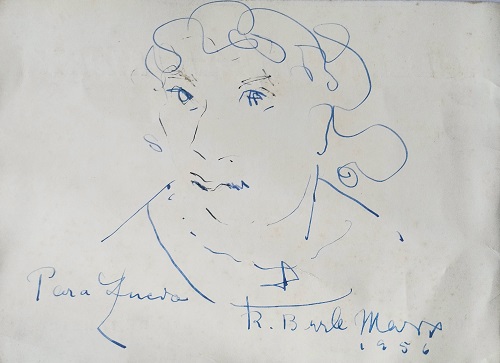 Para
R. Burle Marx
1956